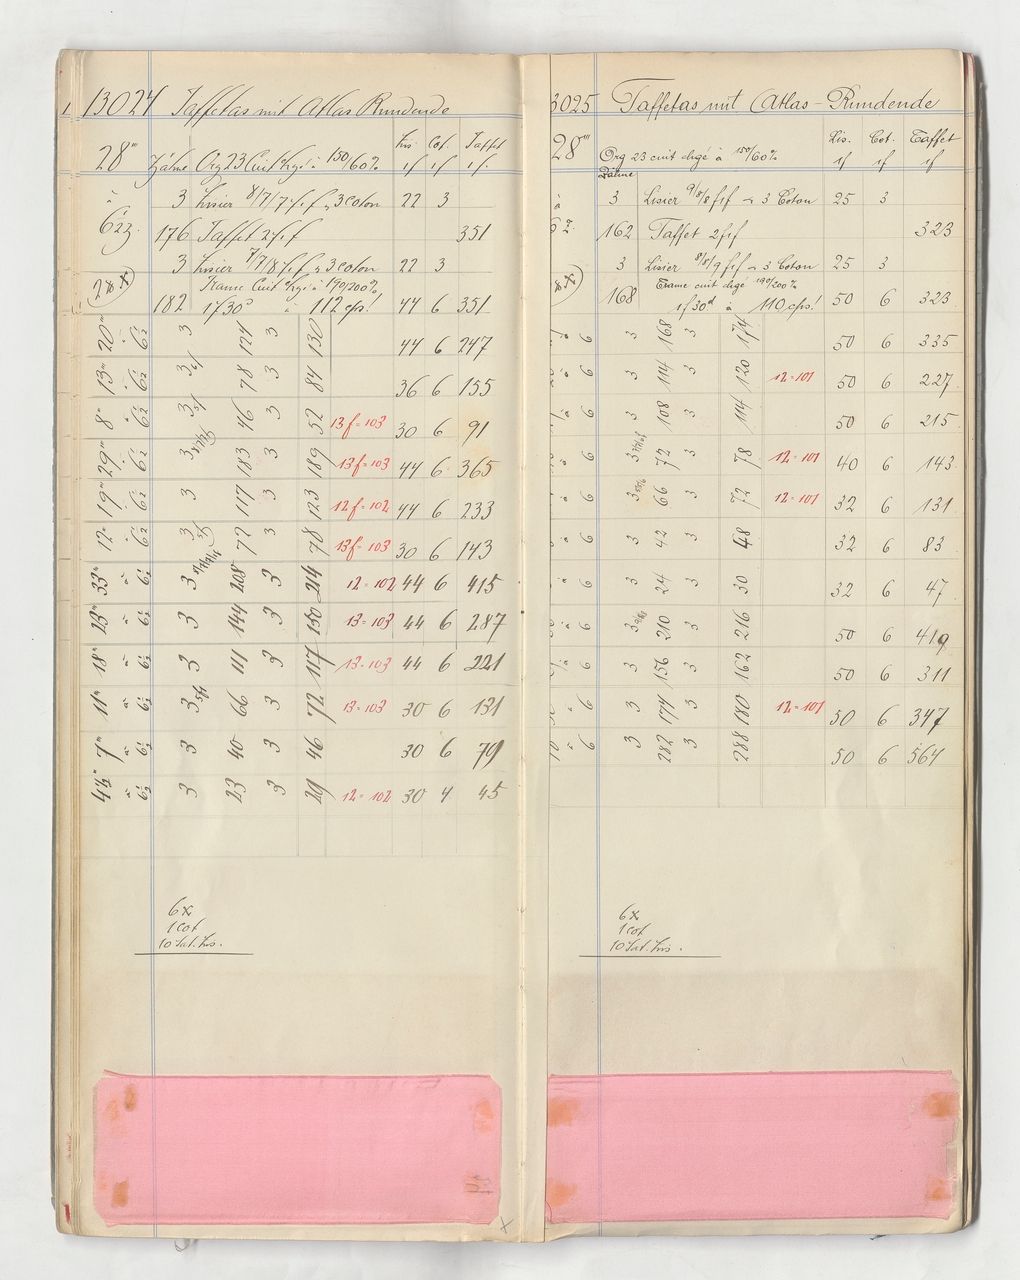 13024 Taffetas mit Atlas Rundende
Lis. Cot. Taffet
1f 1f 1f
28''' Zähne Org 23 Cuit à 150/60%
à
3 Lisier 8/7/7 f. f. 3 coton 22 3
6 Zz. 176 Taffet 2 f. f 351
3 Lisier 7/7/8 f. f. 3 coton 22 3
Trame Cuit à 190/200%
182 1f 30d à 112 cps! 44 6 351
20''' à 6½ 3 124 3 130 44 6 247
13''' à 6½ 3 78 3 84 36 6 155
8''' à 6½ 3 46 3 52 13 f = 103 30 6 91
29''' à 6½ 3 183 3 189 13 f = 103 44 6 365
19''' à 6½ 3 117 3 123 12 f = 102 44 6 233
12''' à 6½ 3 72 3 78 13 f = 103 30 6 143
33''' à 6½ 3 208 3 214 12 = 102 44 6 415
23''' à 6½ 3 144 3 150 13 = 103 44 6 287
18''' à 6½ 3 111 3 117 13 = 103 44 6 221
11''' à 6½ 3 66 3 72 13 = 103 30 6 131
7''' à 6½ 3 40 3 46 30 6 79
4½''' à 6½ 3 23 3 29 12 = 102 30 4 45
6x
1 cot
10 Sat. Lis.
3025 Taffetas mit Atlas-Rundende
Lis. Cot. Taffet
1f 1f 1f
28''' Org 23 cuit chgé à 150/60%
Zähne
à 3 Lisier 9/8/8 f. f. 3 Coton 25 3
6 Z. 162 Taffet 2 f. f 323
3 Lisier 8/8/9 f. f. 3 Coton 25 3
Trame cuit chgé 190/200%
168 1f 30d à 110 cps! 50 6 323
6 3 168 3 174 50 6 335
6 3 114 3 120 12 = 101 50 6 227
6 3 108 3 114 50 6 215
6 3 72 3 78 12 = 101 40 6 143
6 3 66 3 72 12 = 101 32 6 131
6 3 42 3 48 32 6 83
6 3 24 3 30 32 6 47
6 3 210 3 216 50 6 419
6 3 156 3 162 50 6 311
6 3 174 3 180 12 = 101 50 6 347
6 3 282 3 288 50 6 564
6x
1 cot
10 Sat. Lis.